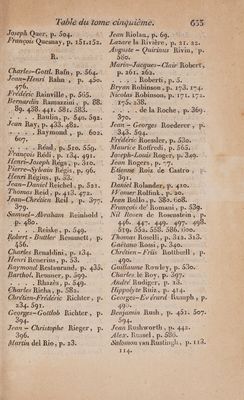 Table du tome cinquième. 655
Joseph Quer, p. 504.
François Quesnay, p. 151. 152.
R.
Charles-Gottl. Rafn, p. 564.
Jean-Henri Rahn, p. 450.
476.
Frédéric Rainville, p. 565.
Bernardin Ramazzini, p. 88.
89. 438. 441. 581. 583.
. . . . Rastlin, p. 540. 592.
Jean Ray, p. 433. 482.
. . . . Raymond, p. 602.
607.
. . . . Réal, p. 510. 559.
François Rédi, p. 134. 491.
Henri-Joseph Réga, p. 310.
Pierre-Sylvain Régis, p. 96.
Henri Régius, p. 53.
Jean-Daniel Reichel, p. 521.
Thomas Reid, p. 413. 472.
Jean-Chrétien Reil, p. 377.
379.
Samuel-Abraham Reinhold,
p. 480.
. . . . Reiske, p. 549.
Robert-Buttler Remmett, p.
456.
Charles Renaldini, p. 134.
Henri Renerius, p. 53.
Raymond Restaurand, p. 435.
Barthol. Reusner, p. 599.
. . . . Rhazès, p. 549.
Charles Richa, p. 582.
Chrétien-Frédéric Richter, p.
234. 591.
Georges-Gottlob Richter, p.
394.
Jean-Christophe Rieger, p.
396.
Martin del Rio, p. 23.
Jean Riolan, p. 69.
Lazare la Rivière, p. 21. 22.
Auguste-Quirinus Rivin, p.
580.
Marin-Jacques-Clair Robert,
p. 261. 262.
. . . . Roberti, p. 5.
Bryan Robinson, p. 173. 174.
Nicolas Robinson, p. 171. 172.
175. 238.
. . . . de la Roche, p. 369.
370.
Jean-Georges Roederer, p.
343. 594.
Frédéric Roessler, p. 530.
Maurice Roffredi, p. 565.
Joseph-Louis Roger, p. 349.
Jean Rogers, p. 77.
Etienne Roiz de Castro, p.
391.
Daniel Rolander, p. 410.
Werner Rolfink, p. 20.
Jean Rollo, p. 380. 608.
François de Romani, p. 539.
Nil Rosen de Rosenstein, p.
446. 447. 449. 497. 498.
519. 552. 558. 586. 600.
Thomas Roselli, p. 312. 313.
Gaëtano Rossi, p. 340.
Chrétien-Friis Rottbøll, p.
490.
Guillaume Rowley, p. 530.
Charles le Roy, p. 397.
André Rudiger, p. 13.
Hippolyte Ruiz, p. 414.
Georges-Everard Rumph, p.
498.
Benjamin Rush, p. 451. 507.
594.
Jean Rushworth, p. 442.
Alex. Russel, p. 586.
Salomon van Rustingh, p. 113.
114.